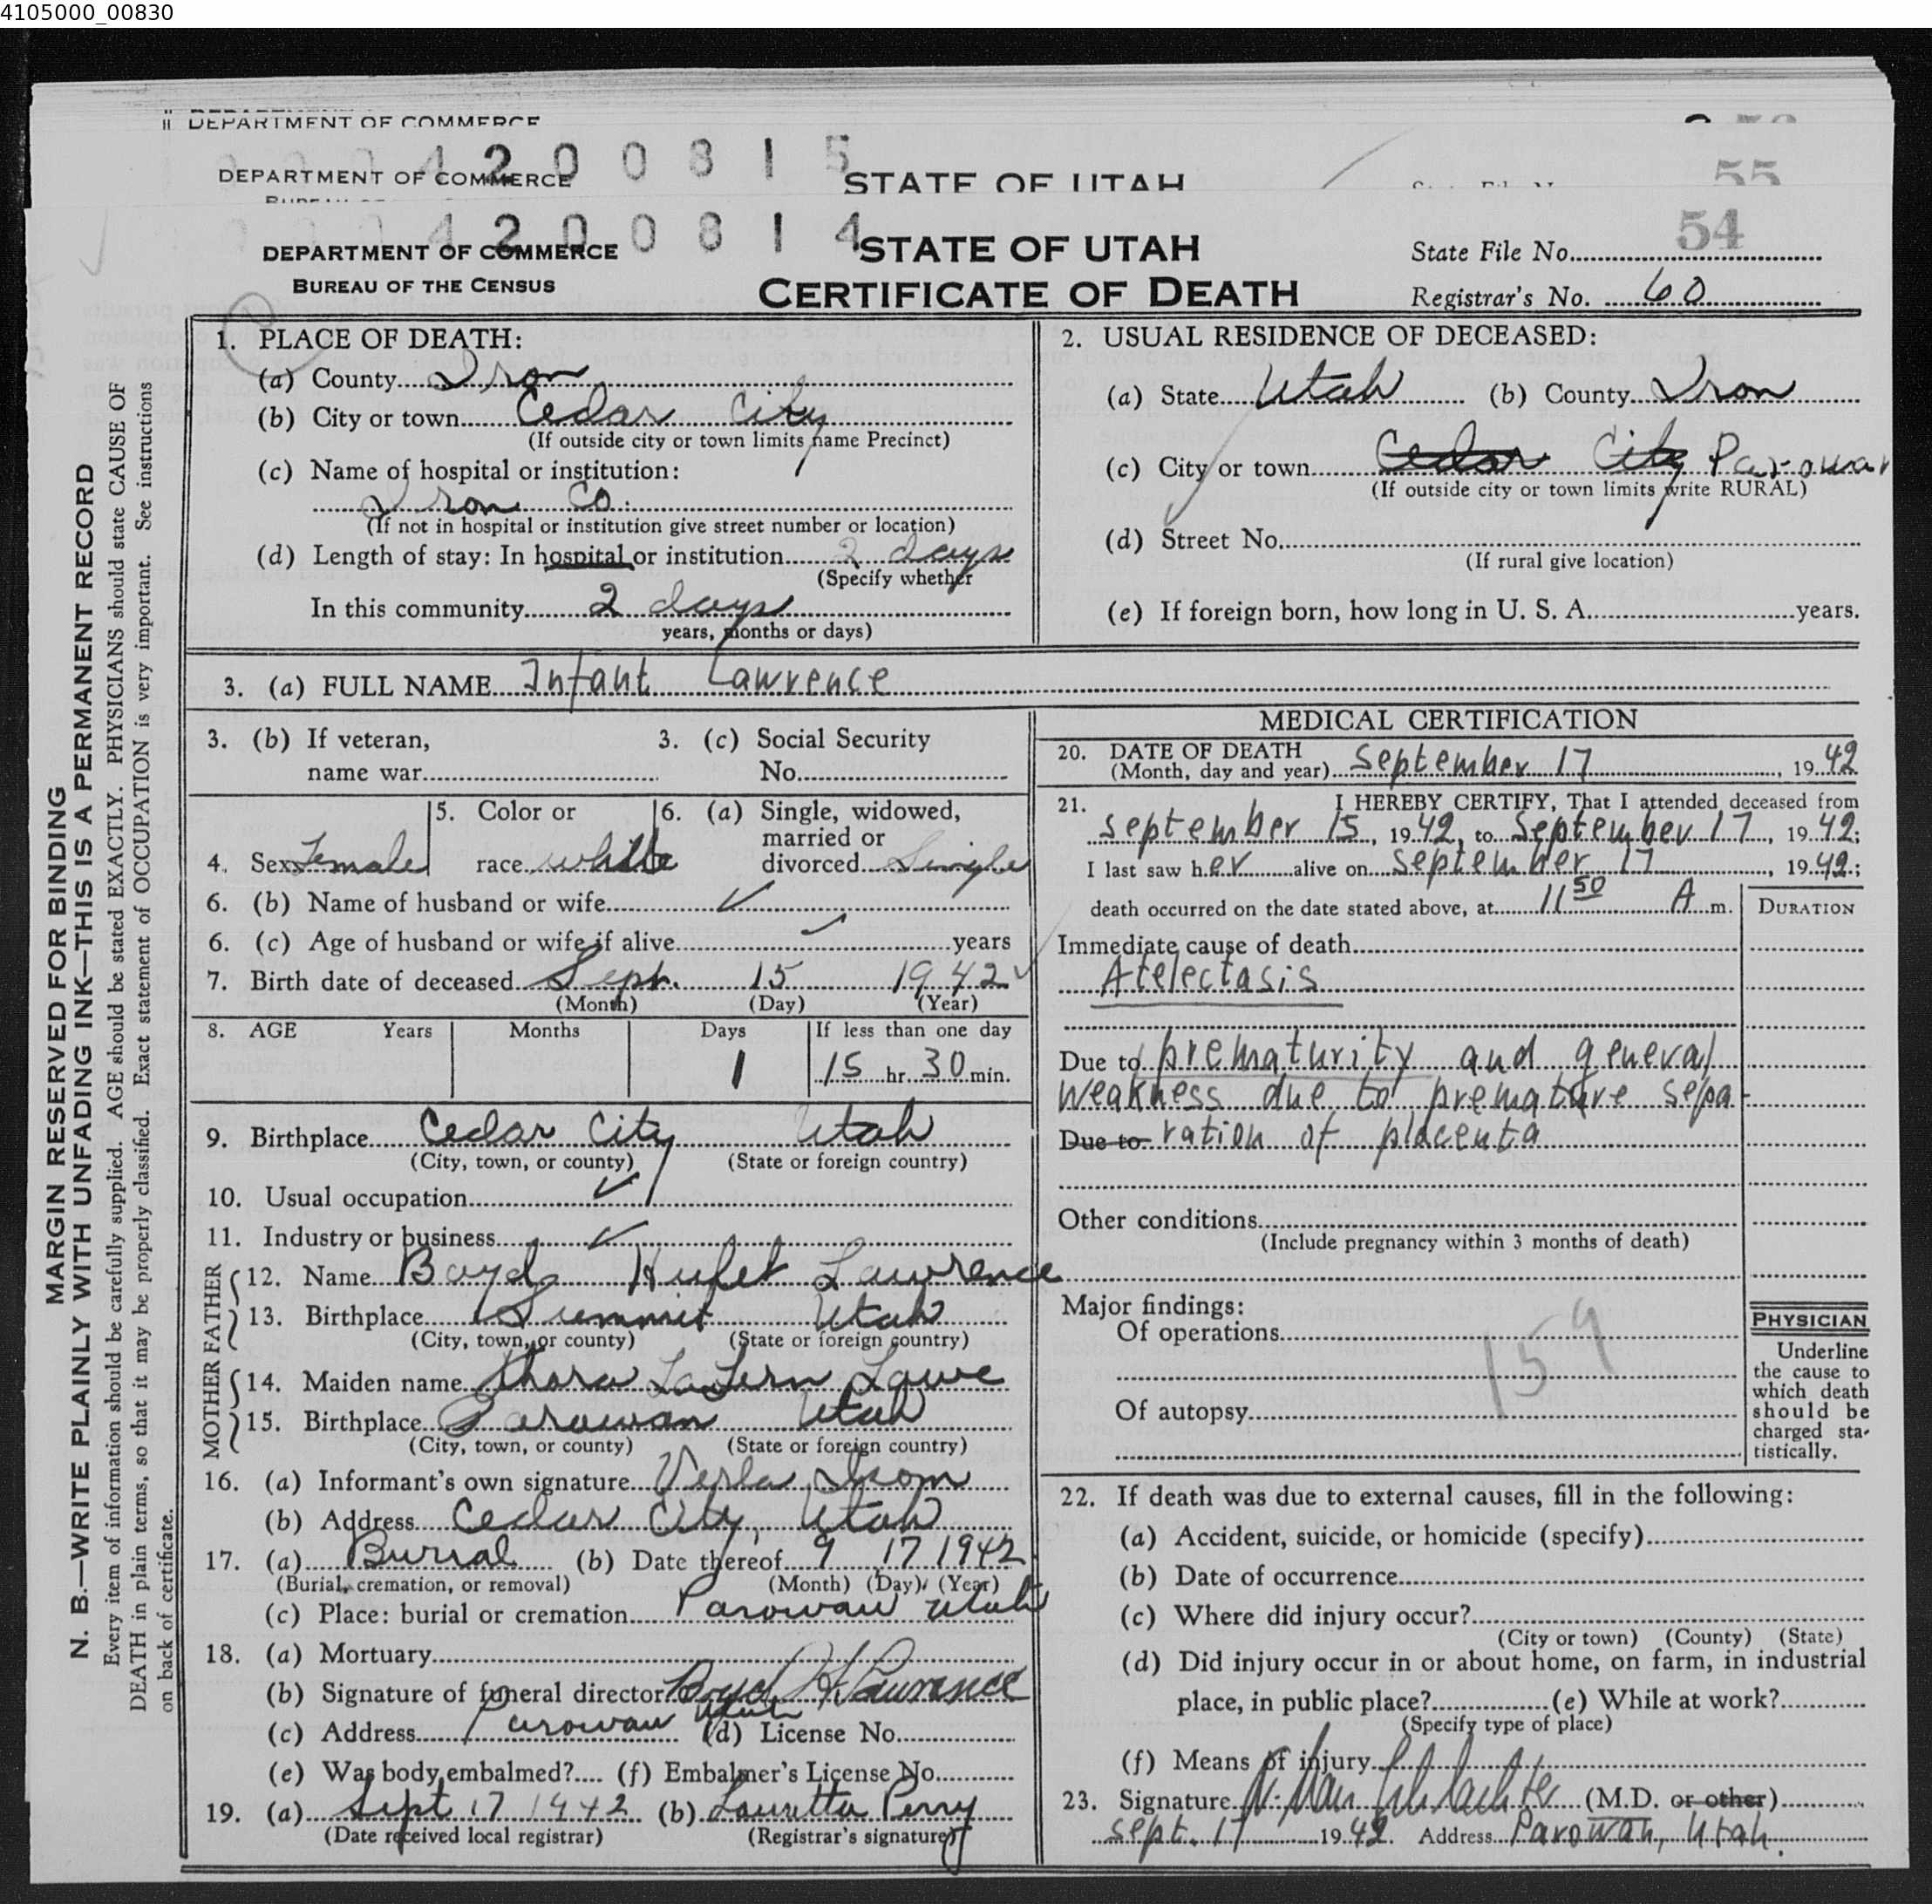 4105000_00830
DEPARTMENT OF COMMERCE
4 2 0 0 8 1 5
55
DEPARTMENT OF COMMERCE
STATE OF UTAH
4 2 0 0 8 1 4
54
DEPARTMENT OF COMMERCE
BUREAU OF THE CENSUS
STATE OF UTAH
CERTIFICATE OF DEATH
State File No.
Registrar's No. 60
MARGIN RESERVED FOR BINDING
N. B.—WRITE PLAINLY WITH UNFADING INK—THIS IS A PERMANENT RECORD
Every item of information should be carefully supplied. AGE should be stated EXACTLY. PHYSICIANS should state CAUSE OF
DEATH in plain terms, so that it may be properly classified. Exact statement of OCCUPATION is very important. See instructions
on back of certificate.
1. PLACE OF DEATH:
(a) County Iron
(b) City or town Cedar City
(If outside city or town limits name Precinct)
(c) Name of hospital or institution:
Iron Co.
(If not in hospital or institution give street number or location)
(d) Length of stay: In hospital or institution 2 days
(Specify whether
In this community 2 days
years, months or days)
2. USUAL RESIDENCE OF DECEASED:
(a) State Utah (b) County Iron
(c) City or town Cedar City Parowan
(If outside city or town limits write RURAL)
(d) Street No.
(If rural give location)
(e) If foreign born, how long in U. S. A. years.
3. (a) FULL NAME Infant Lawrence
3. (b) If veteran,
name war
3. (c) Social Security
No.
4. Sex Female
5. Color or
race white
6. (a) Single, widowed,
married or
divorced Single
6. (b) Name of husband or wife
6. (c) Age of husband or wife if alive years
7. Birth date of deceased Sept. 15 1942
(Month) (Day) (Year)
8. AGE Years Months Days If less than one day
1 15 hr. 30 min.
9. Birthplace Cedar City Utah
(City, town, or county) (State or foreign country)
10. Usual occupation
11. Industry or business
FATHER
12. Name Boyd Hulet Lawrence
13. Birthplace Summit Utah
(City, town, or county) (State or foreign country)
MOTHER
14. Maiden name Thora LaVern Lowe
15. Birthplace Parowan Utah
(City, town, or county) (State or foreign country)
16. (a) Informant's own signature Verla Isom
(b) Address Cedar City, Utah
17. (a) Burial (b) Date thereof 9 17 1942
(Burial, cremation, or removal) (Month) (Day) (Year)
(c) Place: burial or cremation Parowan Utah
18. (a) Mortuary
(b) Signature of funeral director Boyd H Lawrence
(c) Address Parowan Utah (d) License No.
(e) Was body embalmed? (f) Embalmer's License No.
19. (a) Sept 17 1942 (b) Lauretta Perry
(Date received local registrar) (Registrar's signature)
MEDICAL CERTIFICATION
20. DATE OF DEATH
(Month, day and year) September 17, 1942
21. I HEREBY CERTIFY, That I attended deceased from
September 15, 1942, to September 17, 1942;
I last saw her alive on September 17, 1942;
death occurred on the date stated above, at 11 50 A m.
DURATION
Immediate cause of death
Atelectasis
Due to prematurity and general
weakness due to premature sepa-
Due to ration of placenta
Other conditions
(Include pregnancy within 3 months of death)
Major findings:
Of operations
159
Of autopsy
PHYSICIAN
Underline
the cause to
which death
should be
charged sta-
tistically.
22. If death was due to external causes, fill in the following:
(a) Accident, suicide, or homicide (specify)
(b) Date of occurrence
(c) Where did injury occur?
(City or town) (County) (State)
(d) Did injury occur in or about home, on farm, in industrial
place, in public place? (e) While at work?
(Specify type of place)
(f) Means of injury
23. Signature (M.D. or other)
Sept. 17 1942. Address Parowan, Utah.